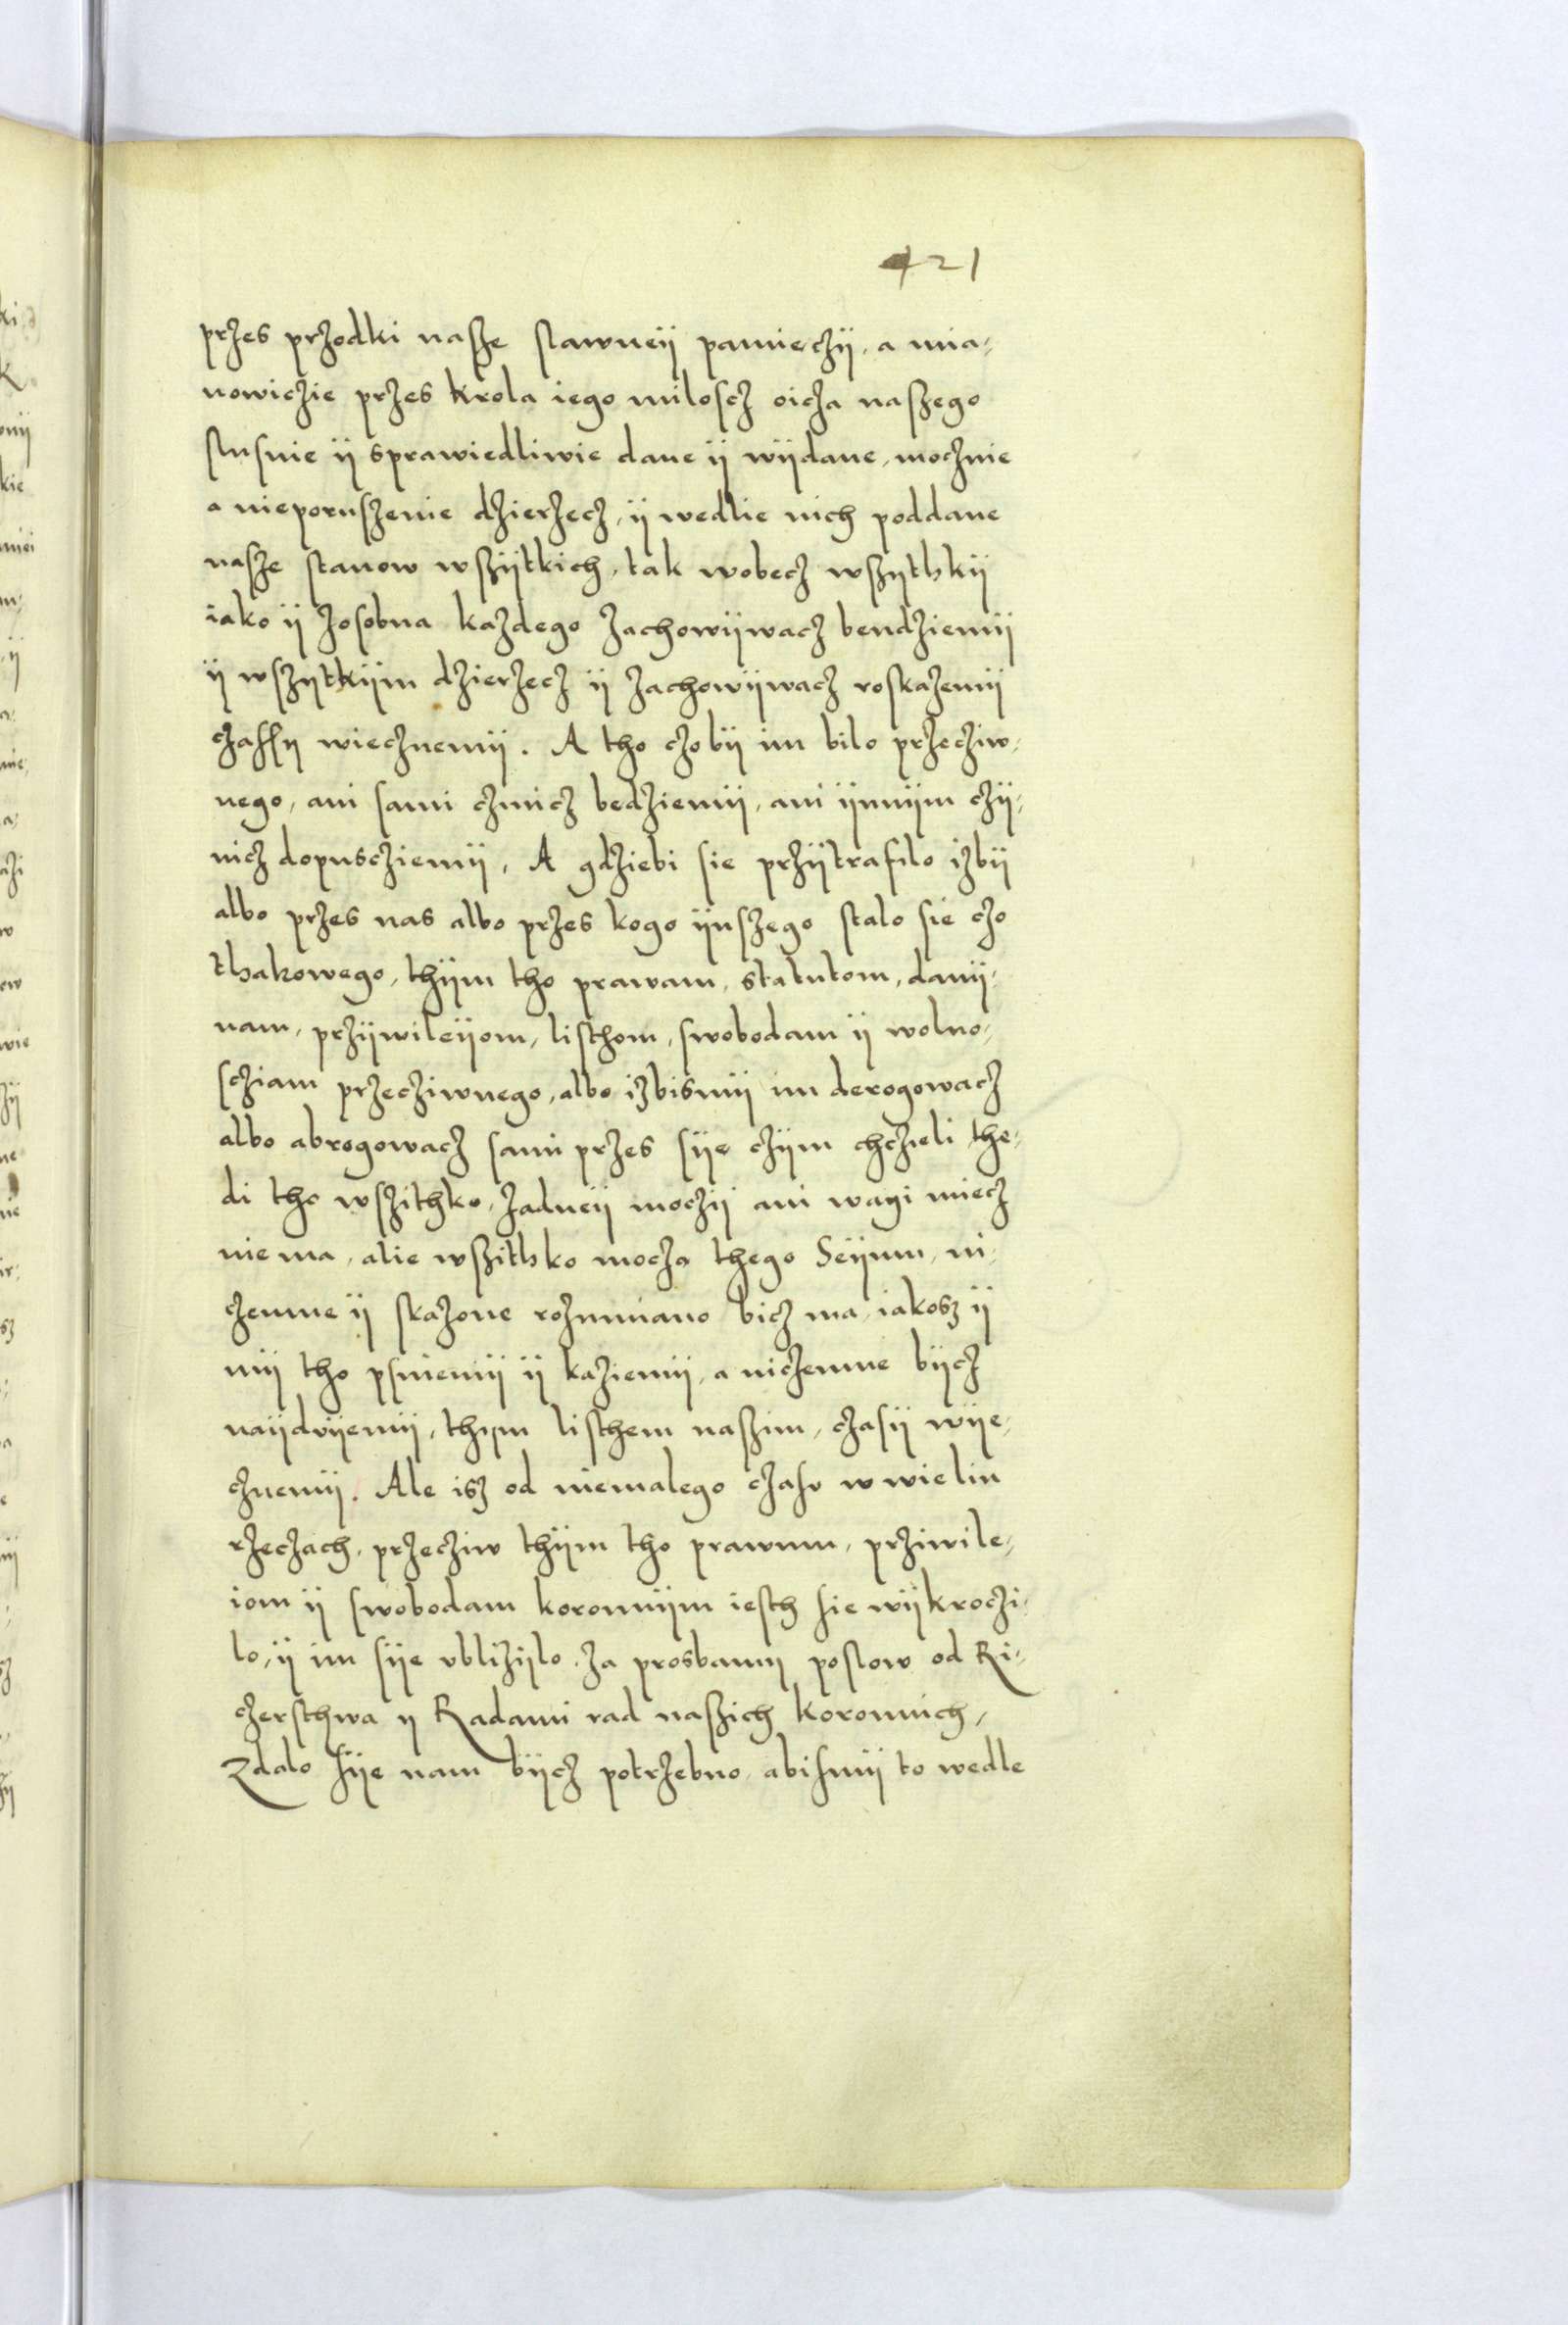 421
przes przodki nasze slawneÿ pamieczÿ, a mia-
nowiczie przes krola iego miloscz oicza naszego
slusnie ÿ sprawiedliwie dane ÿ wÿdane, mocznie
a nieporuszenie dzierzecz, ÿ wedlie nich poddane
nasze stanow wszÿtkich, tak wobecz wszythkÿ
iako ÿ zosobna kazdego zachowÿwacz bendziemÿ
ÿ wszytkÿm dzierzecz ÿ zachowÿwacz roskazemÿ
czassy wiecznemÿ. A tho czobÿ im bilo przecziw-
nego, ani sami czinicz bedziemÿ, ani ÿnnÿm czÿ-
nicz dopuscziemÿ, A gdziebi sie przÿtrafilo izbÿ
albo przes nas albo przes kogo ÿnszego stalo sie czo
thakowego, thÿm tho prawam, statutom, danÿ-
nam, przÿwileÿom, listhom, swobodam ÿ wolno-
scziam przecziwnego, albo izbismÿ im derogowacz
albo abrogowacz sami przes sÿe czÿm chczieli the-
di tho wszithko, zadneÿ moczÿ ani wagi miecz
nie ma, alie wszithko mocza thego Seÿmu, ni-
czemne ÿ skazone rozumiano bicz ma, iakosz ÿ
mÿ tho psuiemÿ ÿ kaziemÿ, a niczemne bÿcz
naÿdvÿemÿ, thym listhem naszim, czasÿ wÿe-
cznemÿ. Ale isz od niemalego czasv w wieliu
rzeczach, przecziw thÿm tho prawum, prziwile-
iom ÿ swobodam koronnÿm iesth sie wÿkroczi-
lo, ÿ im sÿe vblizÿlo. Za prosbamy poslow od Ri-
czersthwa y Radami rad naszich koronnich,
Zdalo sÿe nam bÿcz potrzebno, abismÿ to wedle